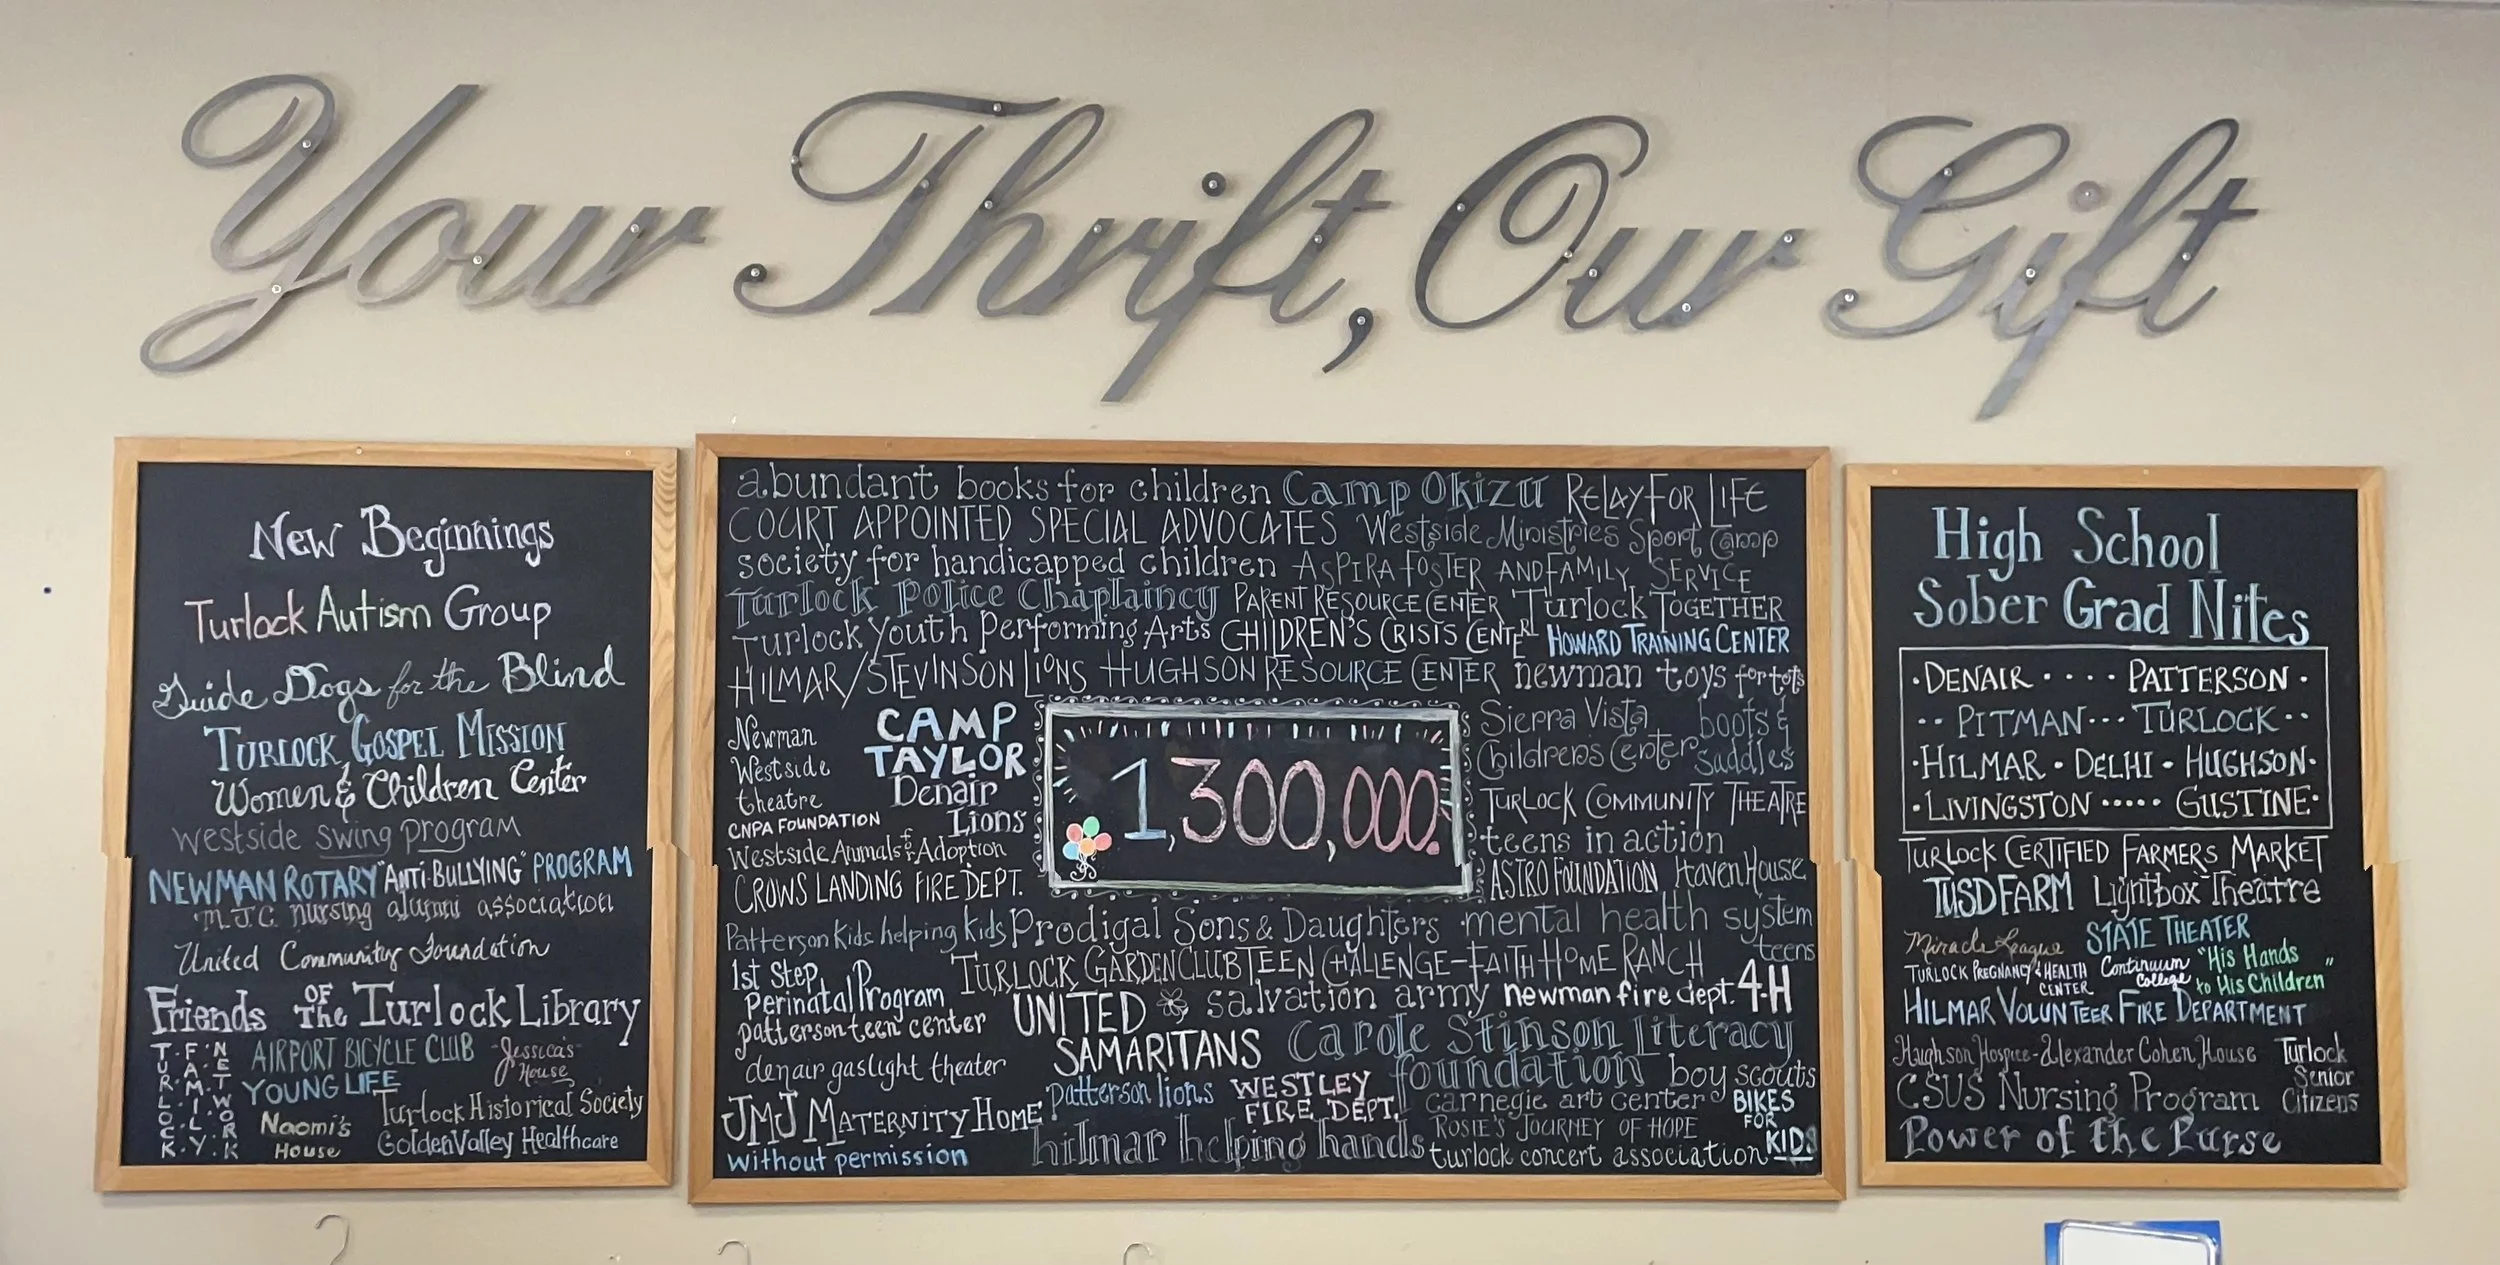 Your Thrift, Our Gift
New Beginnings
Turlock Autism Group
Guide Dogs for the Blind
TURLOCK GOSPEL MISSION
Women & Children Center
westside swing program
NEWMAN ROTARY "ANTI-BULLYING" PROGRAM
M.J.C. nursing alumni association
United Community Foundation
Friends OF THE Turlock Library
TURLOCK
FAMILY
NETWORK
AIRPORT BICYCLE CLUB
-Jessica's-
House
YOUNG LIFE
Naomi's
House
Turlock Historical Society
GoldenValley Healthcare
abundant books for children Camp Okizu RELAY FOR LIFE
COURT APPOINTED SPECIAL ADVOCATES Westside Ministries Sport Camp
society for handicapped children ASPIRA FOSTER AND FAMILY SERVICE
Turlock Police Chaplaincy PARENT RESOURCE CENTER Turlock TOGETHER
Turlock Youth Performing Arts CHILDREN'S CRISIS CENTER HOWARD TRAINING CENTER
HILMAR/STEVINSON LIONS HUGHSON RESOURCE CENTER newman toys for tots
Newman
Westside
theatre
CAMP
TAYLOR
Denair
Lions
CNPA FOUNDATION
Westside Animals for Adoption
CROWS LANDING FIRE DEPT.
1,300,000.
Sierra Vista
Children's Center
boots &
saddles
TURLOCK COMMUNITY THEATRE
teens in action
ASTRO FOUNDATION Haven House
Patterson Kids helping kids Prodigal Sons & Daughters mental health system
teens
1st Step
Perinatal Program
TURLOCK GARDEN CLUB TEEN CHALLENGE-FAITH HOME RANCH
patterson teen center
UNITED
SAMARITANS
salvation army newman fire dept. 4-H
denair gaslight theater
Carole Stinson literacy
foundation boy scouts
JMJ MATERNITY HOME
patterson lions
WESTLEY
FIRE DEPT.
carnegie art center
BIKES
FOR
KIDS
ROSIE'S JOURNEY OF HOPE
without permission
hilmar helping hands
turlock concert association
High School
Sober Grad Nites
·DENAIR····PATTERSON·
··PITMAN···TURLOCK··
·HILMAR·DELHI·HUGHSON·
·LIVINGSTON·····GUSTINE·
TURLOCK CERTIFIED FARMERS MARKET
TUSD FARM Lightbox Theatre
Miracle League STATE THEATER
TURLOCK PREGNANCY & HEALTH
CENTER
Continuum
College
"His Hands
to His Children"
HILMAR VOLUNTEER FIRE DEPARTMENT
Hughson Hospice-Alexander Cohen House
Turlock
Senior
Citizens
CSUS Nursing Program
Power of the Purse